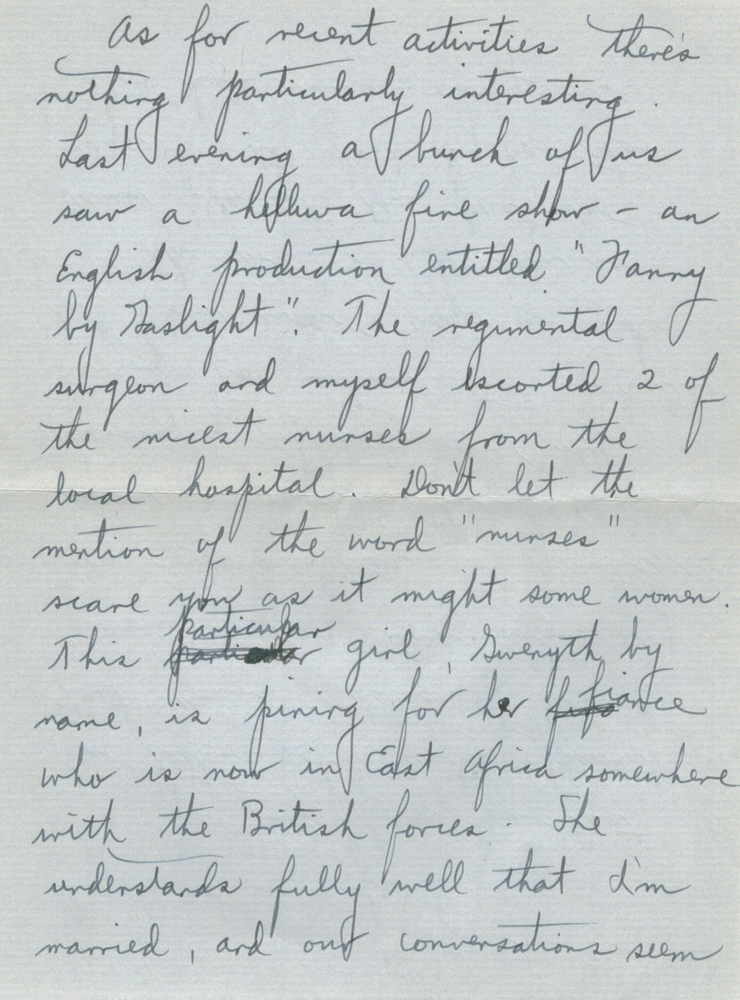 As for recent activities there's
nothing particularly interesting.
Last evening a bunch of us
saw a helluva fine show – an
English production entitled "Fanny
by Gaslight". The regimental
surgeon and myself escorted 2 of
the nicest nurses from the
local hospital. Don't let the
mention of the word "nurses"
scare you as it might some women.
This particular girl, Gweryth by
name, is pining for her fiance
who is now in East Africa somewhere
with the British forces. She
understands fully well that I'm
married, and our conversations seem